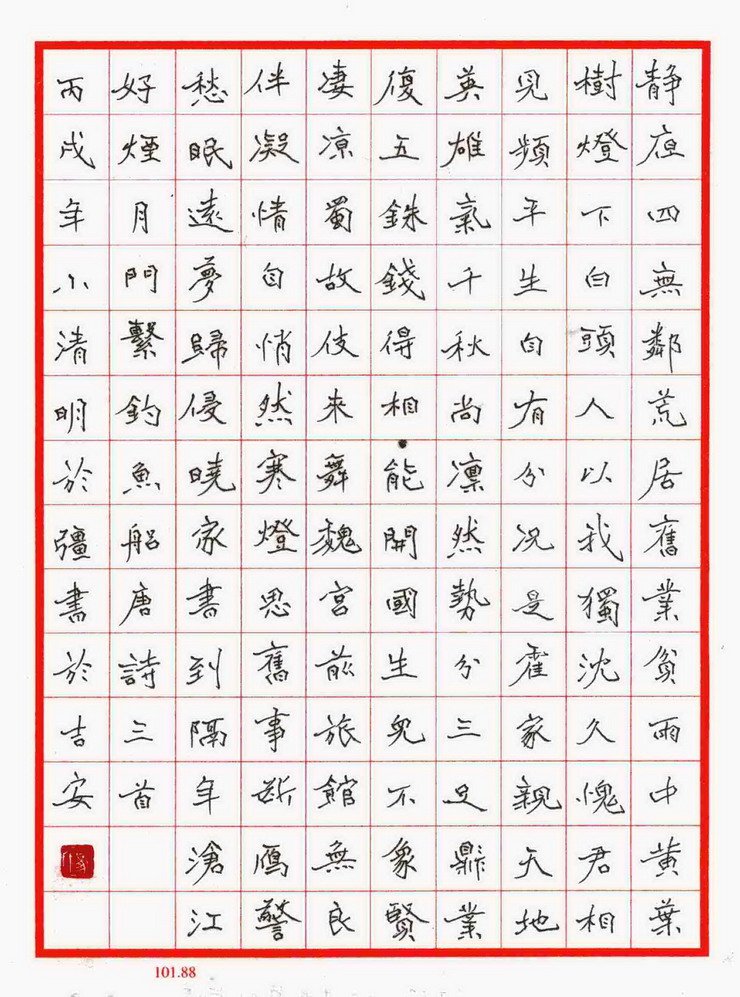 静夜四無鄰荒居舊業貧雨中黄葉
樹燈下白頭人以我獨沈久愧君相
見頻平生自有分况是霍家親天地
英雄氣千秋尚凛然勢分三足鼎業
復五銖錢得相能開國生兒不象賢
凄凉蜀故伎來舞魏宫前旅館無良
伴凝情自悄然寒燈思舊事断鴈警
愁眠遠夢歸侵曉家書到隔年滄江
好煙月門繫釣魚船唐詩三首
丙戌年小清明於疆書於吉安
101.88